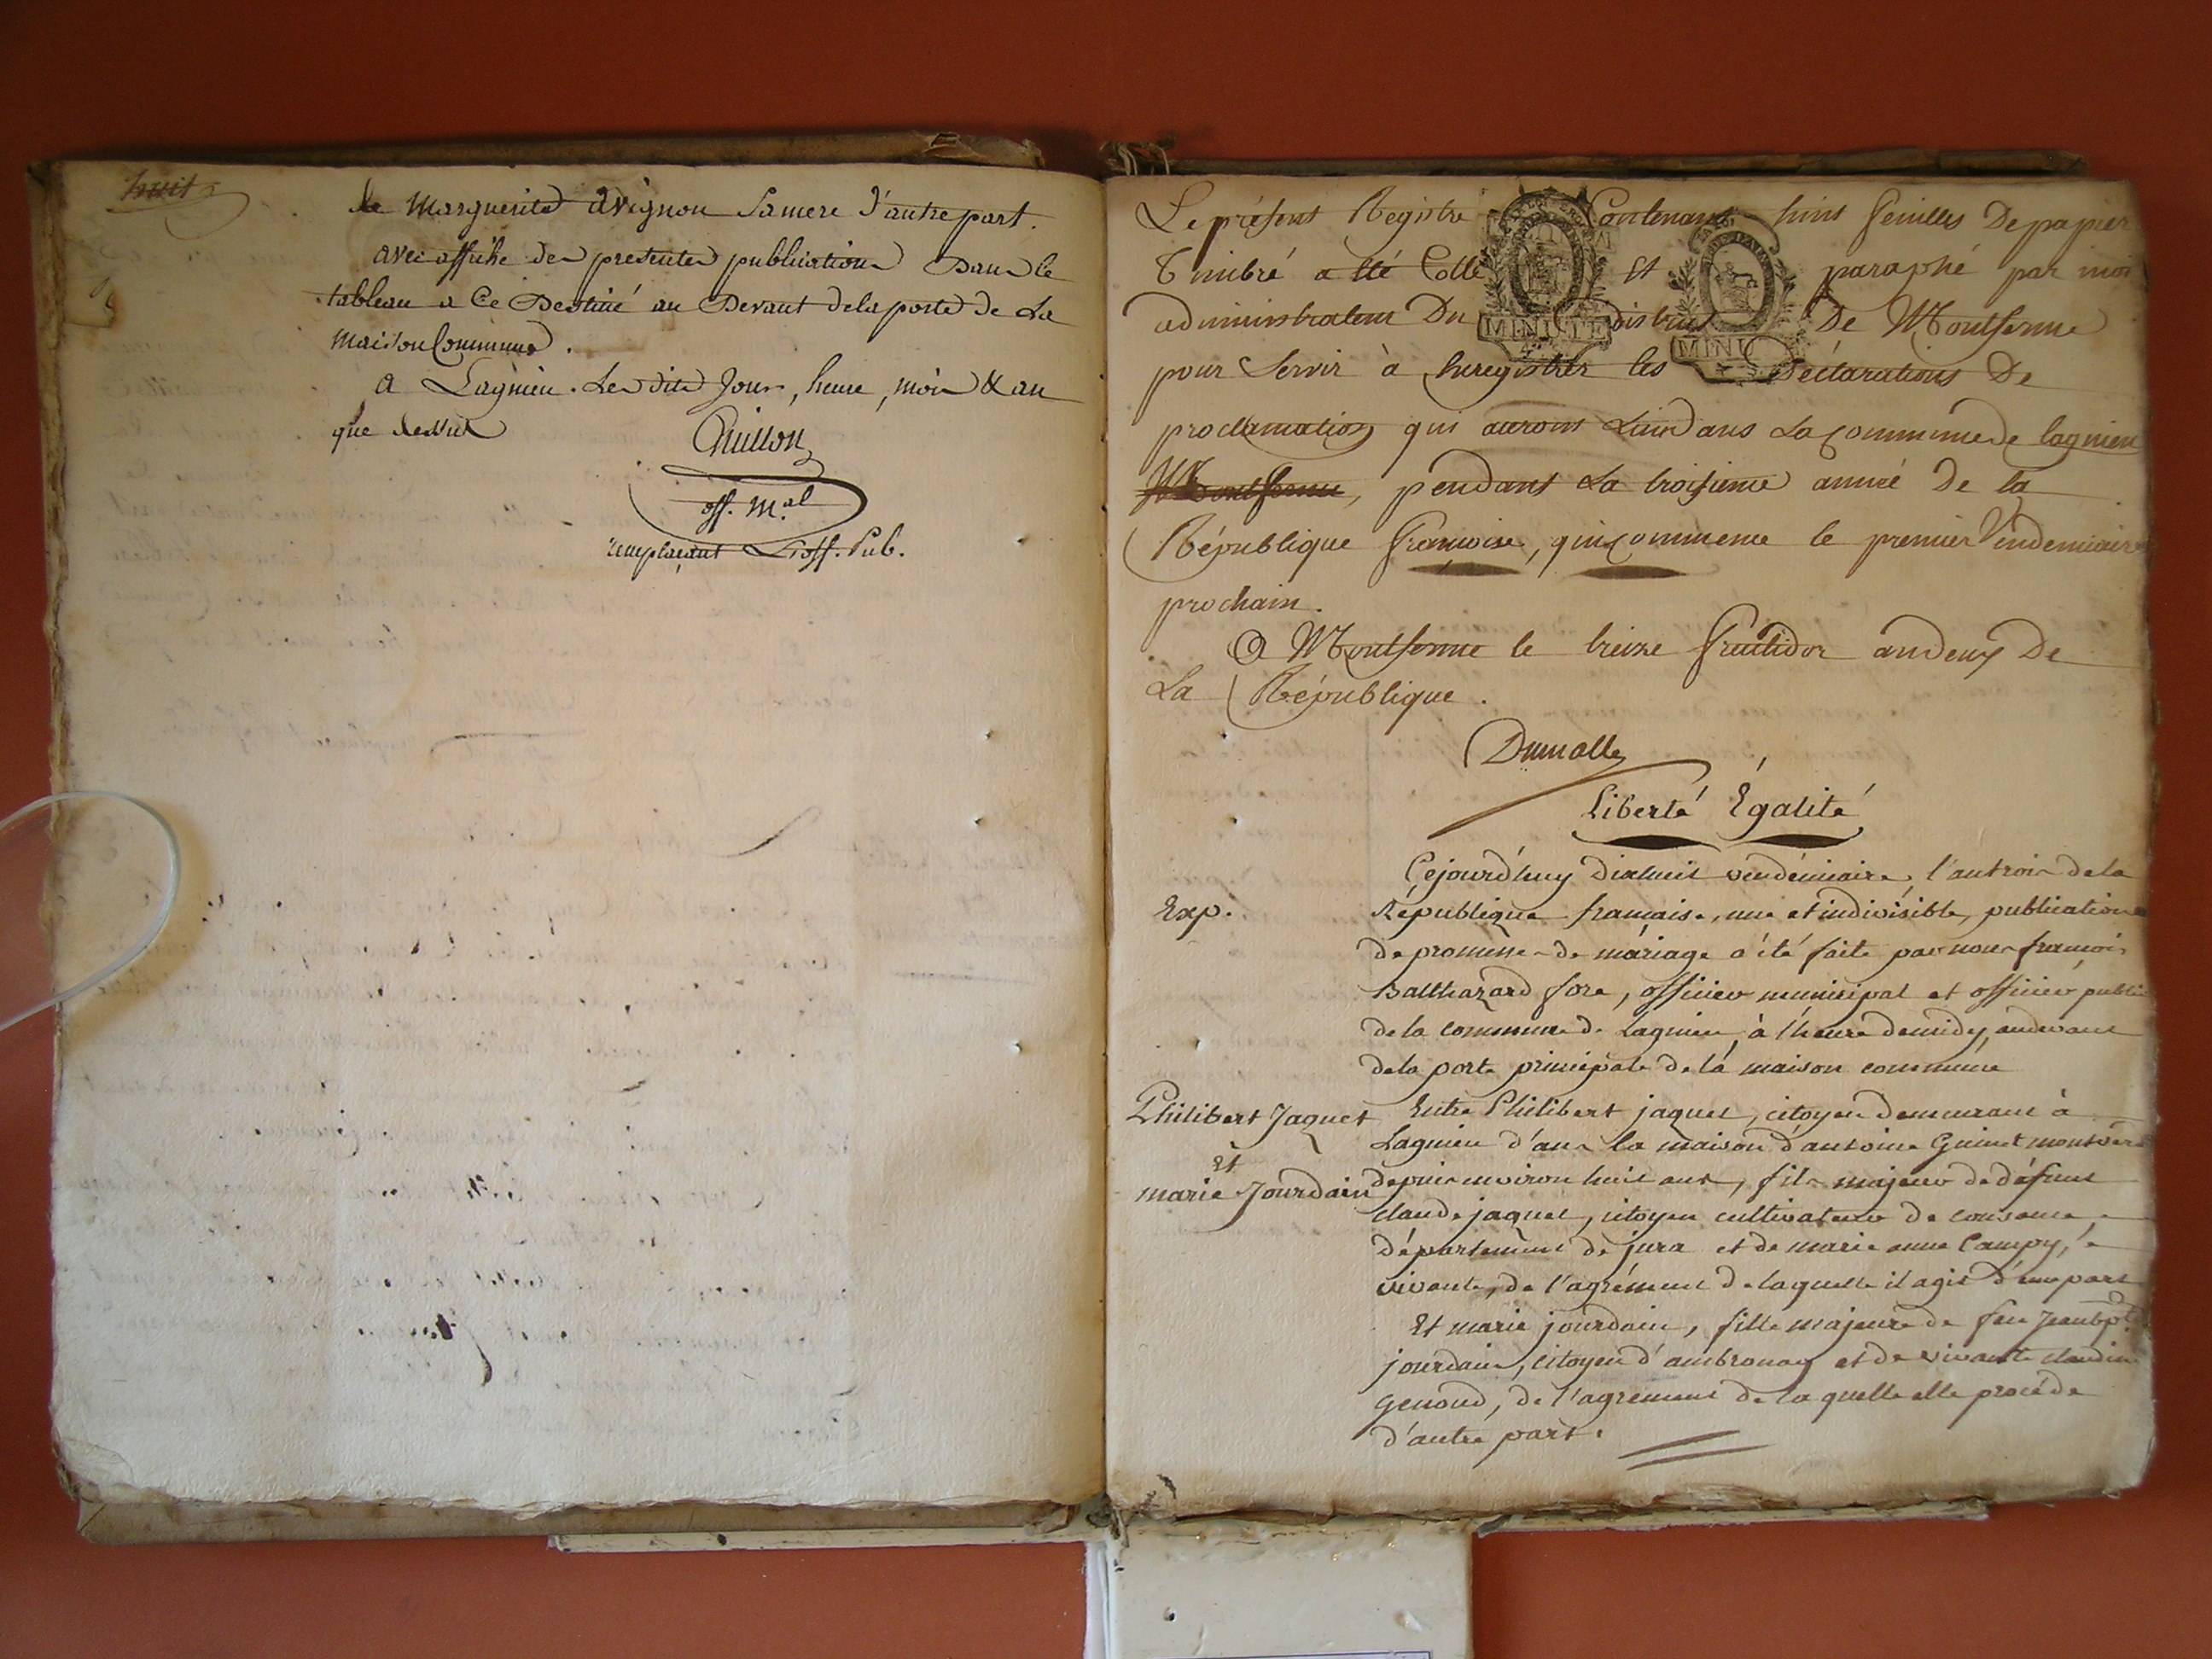 huit
de Marguerite avignon Samere d'autre part.
avec affiche des presentes publications Dans le
tableau a Ce Destiné au Devant dela porte de La
maison Commune.
a Lagnieu. Les dits Jour, heure, mois & an
que dessus
Guillon
off. m.al
remplaçant L'off. Pub.
Le présent Registre Contenant huit feuilles De papier
Timbré a été Collé et paraphé par moi
administrateur Du District De Montferme
pour Servir à Enregistrer les Déclarations De
proclamation qui auront Lieu dans La Commune de lagnieu
Montferme, pendant La troisieme année de la
République françoise, qui Commence le premier Vendemiaire
prochain.
A Montferme le treize fructidor an deux De
La République.
Dumolle
MINUTE
MINU
Liberté Égalité
Cejourd'huy dixhuit vendémiaire, l'an trois de la
Exp.
République française, une et indivisible, publication
de promesse de mariage a été faite par nous françois
Balthazard fore, officier municipal et officier public
de la commune de Lagnieu, à l'heure de midy, audevant
de la porte principale de la maison commune
Philibert Jaquet
et
marie Jourdain
Entre Philibert jaquet, citoyen demeurant à
Lagnieu d'ans la maison d'antoine Guinet montvert
depuis environ huit ans, fils majeur de défunt
claude jaquet, citoyen cultivateur de cousance,
département de jura et de marie anne Campy,
vivante, de l'agrément de laquelle il agit d'une part
Et marie jourdain, fille majeure de feu Jean bpt.
jourdain, citoyen d'ambronay et de vivante claudine
genoud, de l'agrement de la quelle elle procéde
d'autre part.